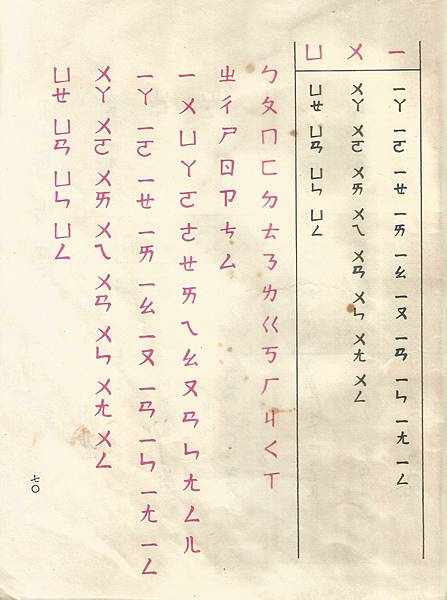 ㄧ ㄧㄚ ㄧㄛ ㄧㄝ ㄧㄞ ㄧㄠ ㄧㄡ ㄧㄢ ㄧㄣ ㄧㄤ ㄧㄥ
ㄨ ㄨㄚ ㄨㄛ ㄨㄞ ㄨㄟ ㄨㄢ ㄨㄣ ㄨㄤ ㄨㄥ
ㄩ ㄩㄝ ㄩㄢ ㄩㄣ ㄩㄥ
ㄅ ㄆ ㄇ ㄈ ㄉ ㄊ ㄋ ㄌ ㄍ ㄎ ㄏ ㄐ ㄑ ㄒ
ㄓ ㄔ ㄕ ㄖ ㄗ ㄘ ㄙ
ㄧ ㄨ ㄩ ㄚ ㄛ ㄜ ㄝ ㄞ ㄟ ㄠ ㄡ ㄢ ㄣ ㄤ ㄥ ㄦ
ㄧㄚ ㄧㄛ ㄧㄝ ㄧㄞ ㄧㄠ ㄧㄡ ㄧㄢ ㄧㄣ ㄧㄤ ㄧㄥ
ㄨㄚ ㄨㄛ ㄨㄞ ㄨㄟ ㄨㄢ ㄨㄣ ㄨㄤ ㄨㄥ
ㄩㄝ ㄩㄢ ㄩㄣ ㄩㄥ
七〇